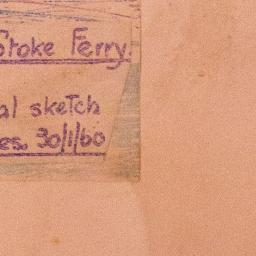 Stoke Ferry.
al sketch
es. 30/1/60